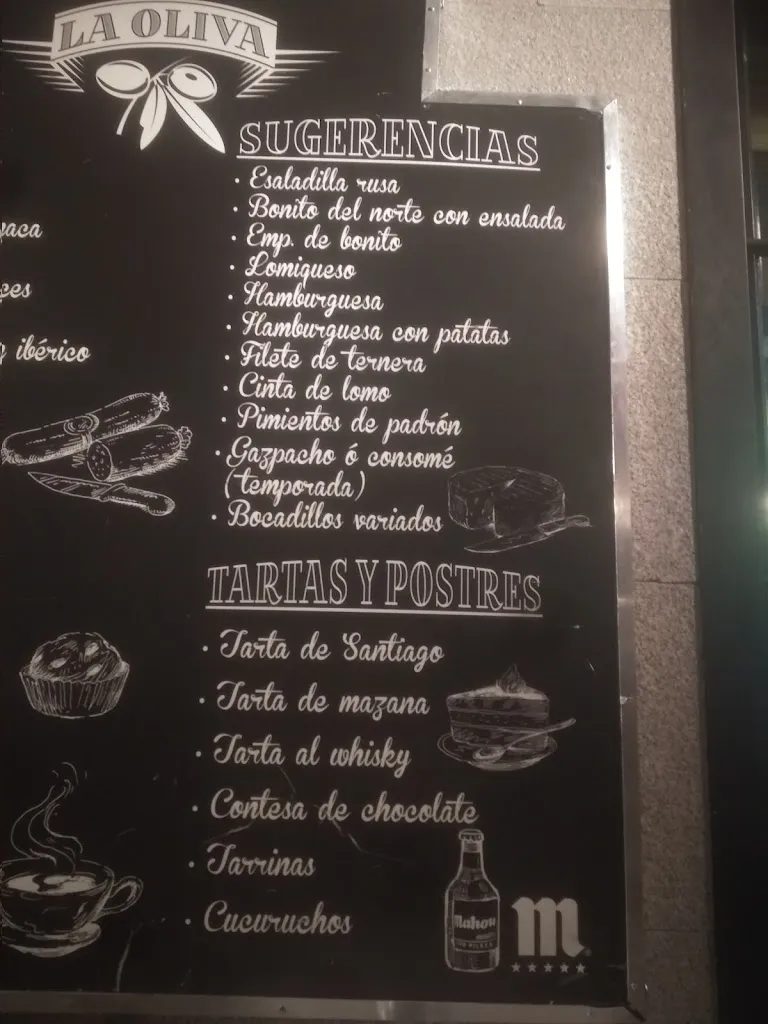 LA OLIVA
SUGERENCIAS
· Esaladilla rusa
· Bonito del norte con ensalada
· Emp. de bonito
· Lomiqueso
· Hamburguesa
· Hamburguesa con patatas
· Filete de ternera
· Cinta de lomo
· Pimientos de padrón
· Gazpacho ó consomé
(temporada)
· Bocadillos variados
ibérico
TARTAS Y POSTRES
· Tarta de Santiago
· Tarta de mazana
· Tarta al whisky
· Contesa de chocolate
· Tarrinas
· Cucuruchos
Mahou
m